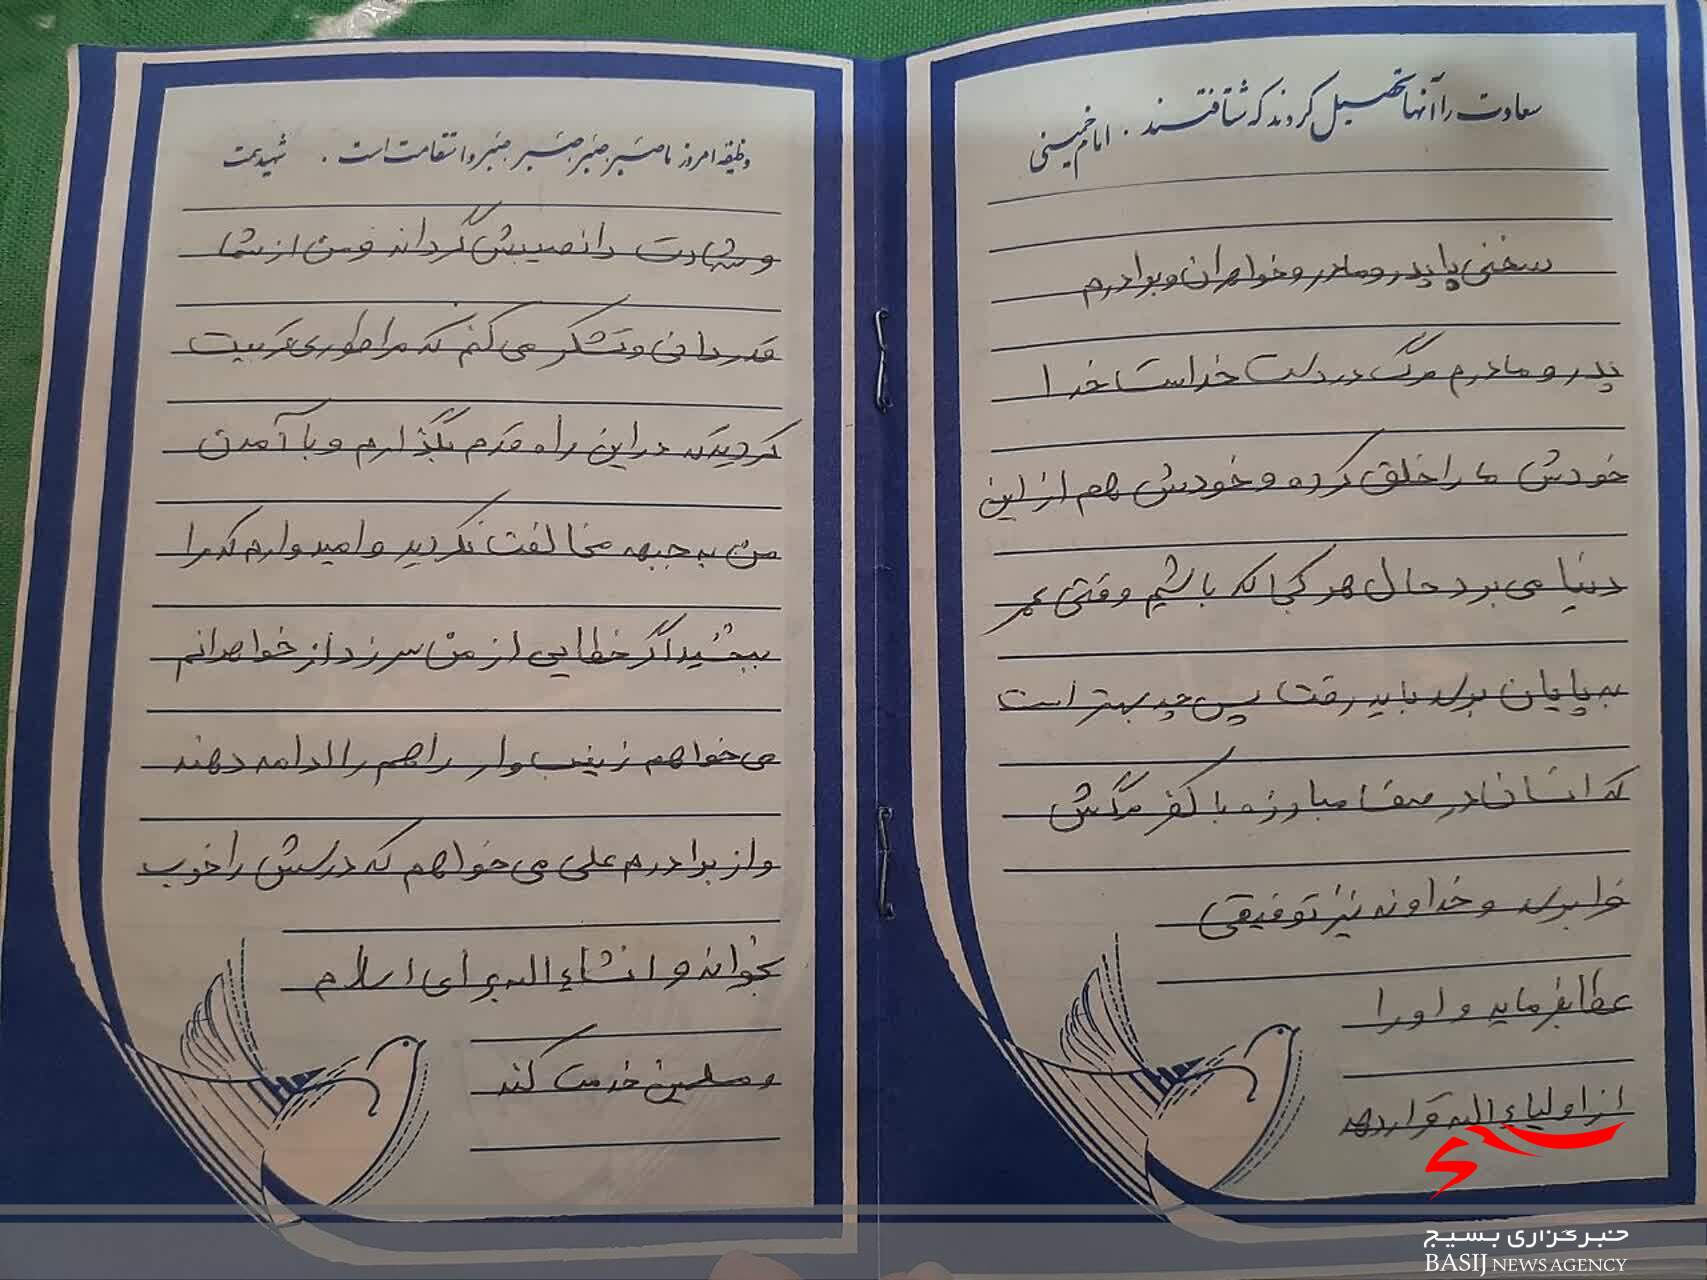 سعادت را آنها تحصیل کردند که شتافتند . امام خمینی
سخنی با پدر و مادر و خواهران و برادرم
پدر و مادرم مرگ در دست خداست خدا
خودش ما را خلق کرده و خودش هم از این
دنیا می برد حال هر کجا که باشیم وقتی عمر
به پایان برسد باید رفت پس چه بهتر است
که انسان در صف مبارزه با کفر مرگش
فرا برسد و خداوند نیز توفیقی
عطا بفرماید و او را
از اولیاء الله قرار دهد
وظیفه امروز ما صبر، صبر، صبر، صبر و استقامت است . شهید همت
و شهادت را نصیبش گرداند و من از شما
قدردانی و تشکر می کنم که مرا طوری تربیت
کردید که در این راه قدم بگذارم و با آمدن
من به جبهه مخالفت نکردید و امیدوارم که مرا
ببخشید اگر خطایی از من سرزد از خواهرانم
می خواهم زینب وار راهم را ادامه دهند
و از برادرم علی می خواهم که درسش را خوب
بخواند و انشاء الله برای اسلام
و مسلمین خدمت کند
بسیج
خبرگزاری بسیج
BASIJ NEWS AGENCY